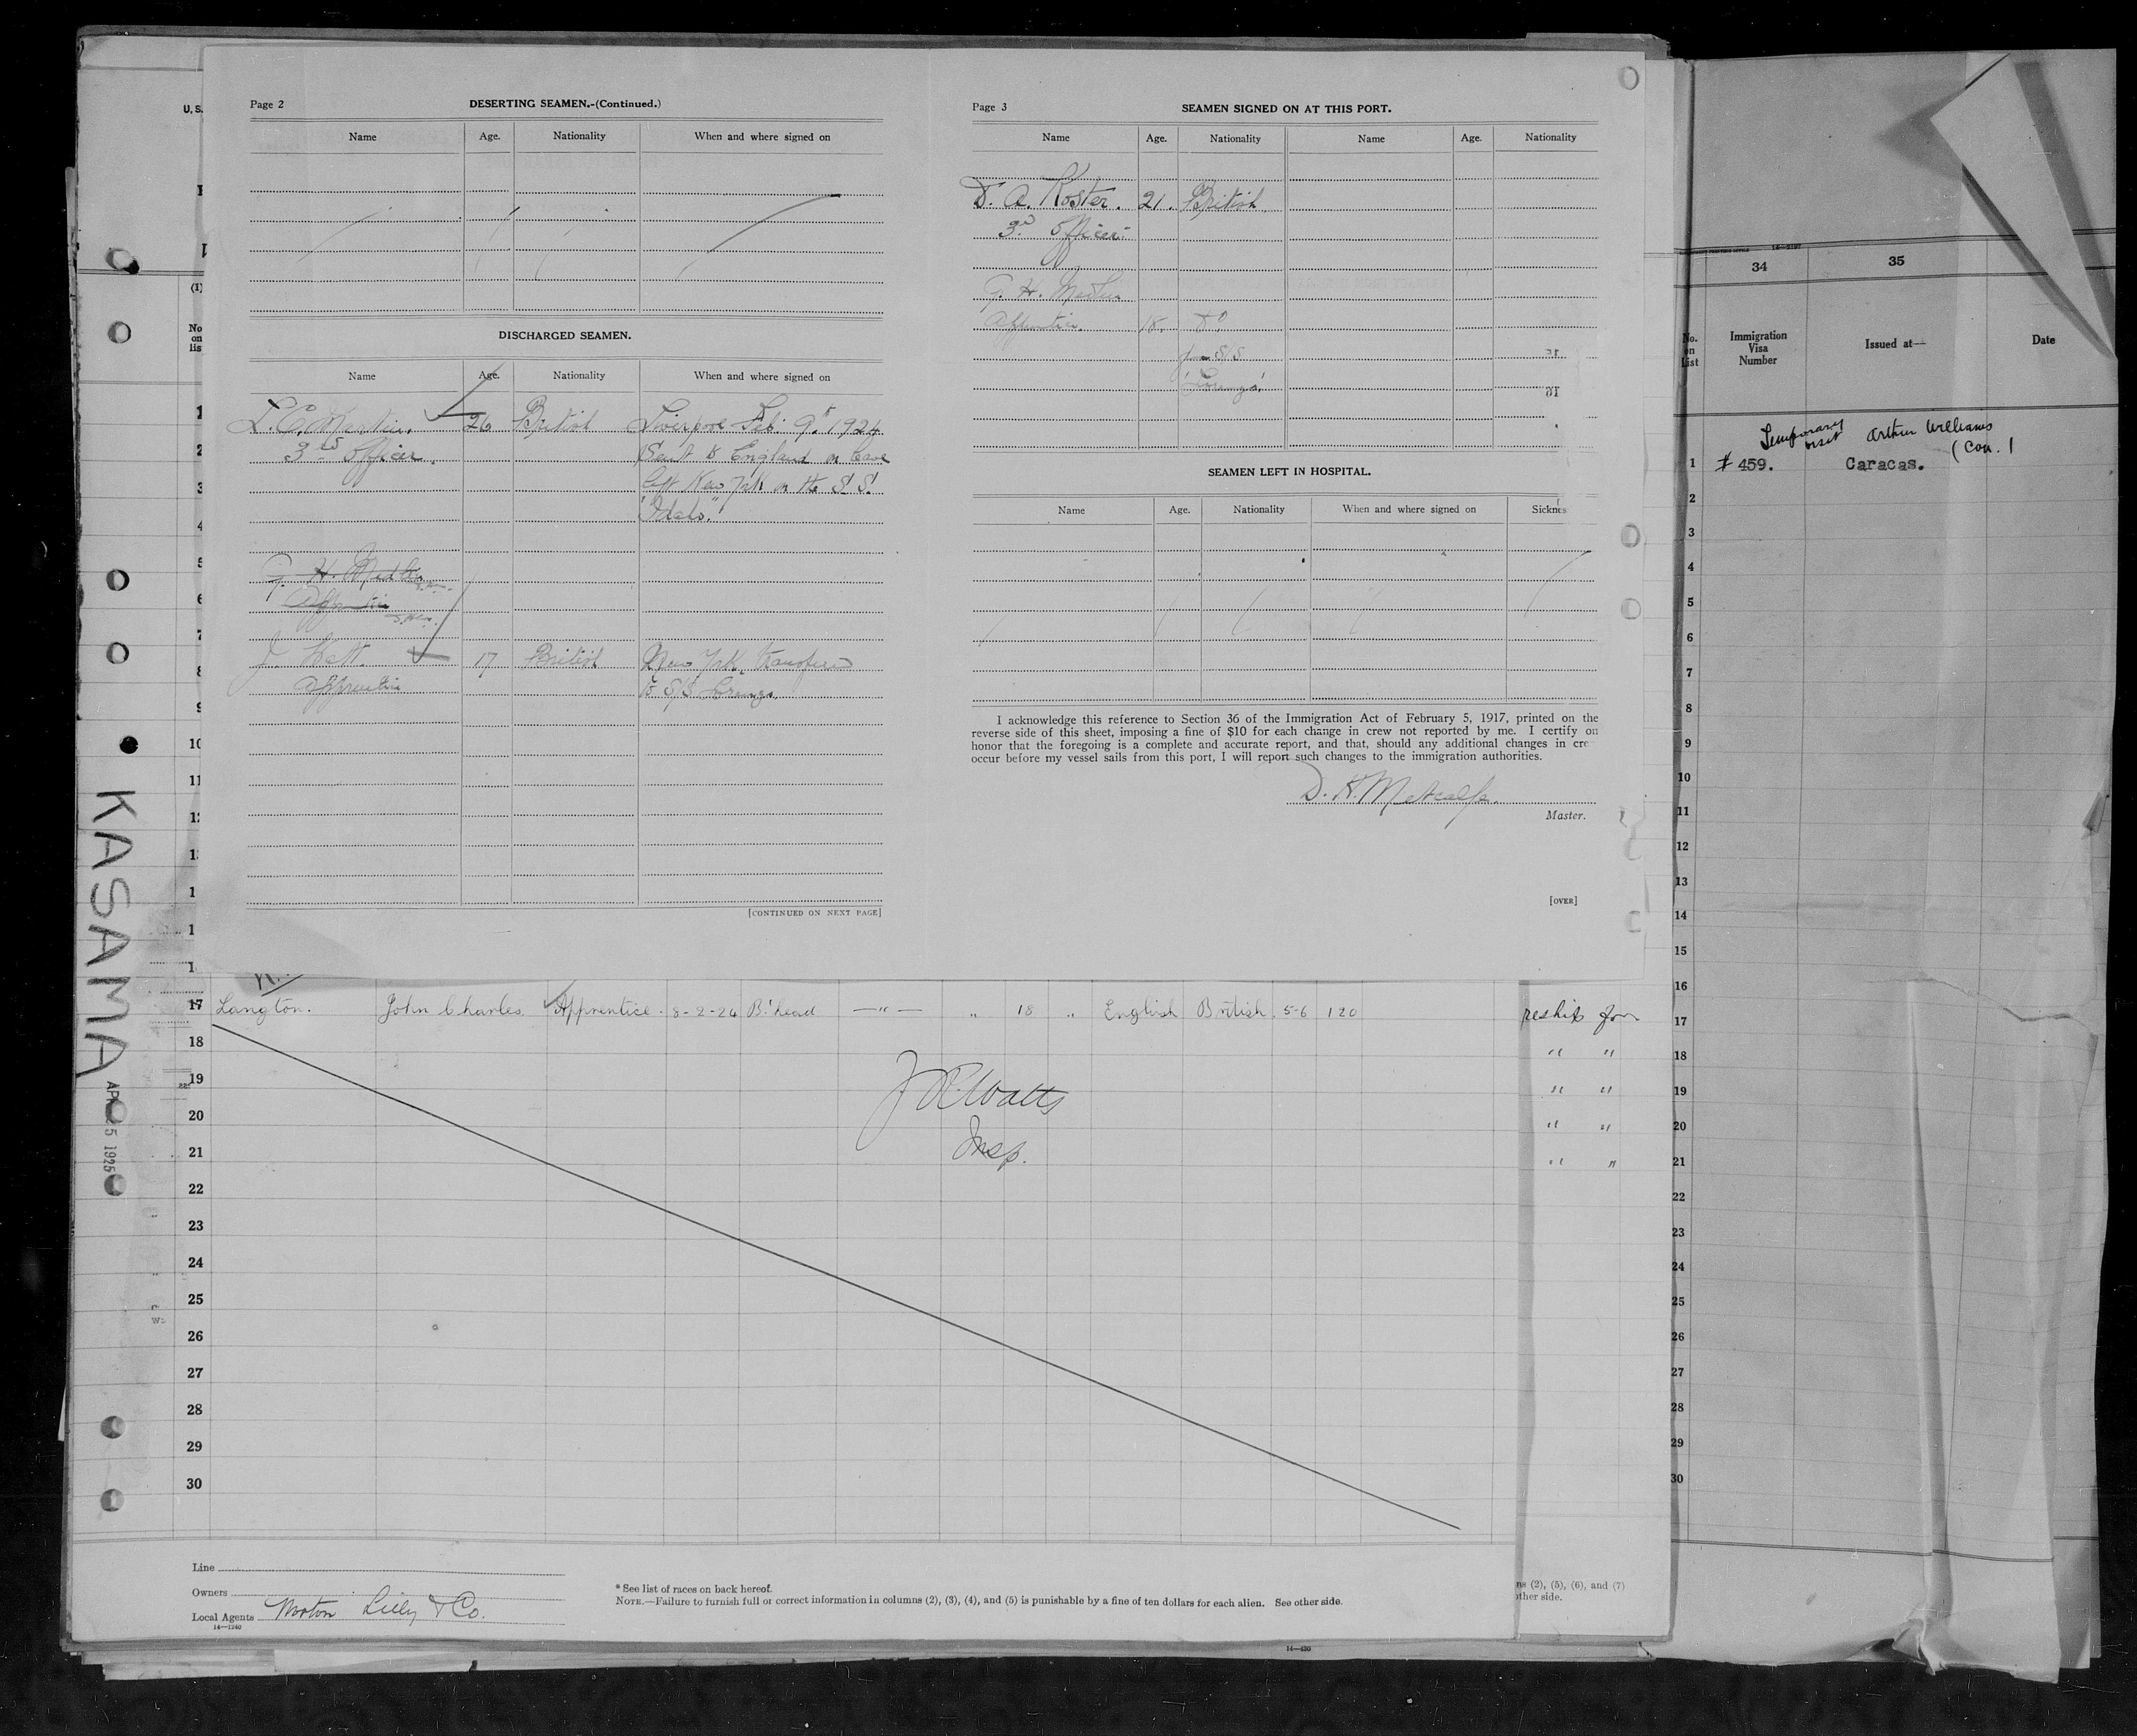 Page 2
DESERTING SEAMEN.-(Continued.)
Name Age. Nationality When and where signed on
DISCHARGED SEAMEN.
Name Age. Nationality When and where signed on
26 British Liverpool Feb. 9th 1924
3rd Officer. Sent to England on leave
left New York on the S.S.
"Idaho."
G. H.
Apprentice
J. 17 British New York transferred
Apprentice to S/S
[CONTINUED ON NEXT PAGE]
Page 3
SEAMEN SIGNED ON AT THIS PORT.
Name Age. Nationality Name Age. Nationality
D. A. Koster. 21. British
3rd Officer.
G. H.
Apprentice. 18. Do
from S/S
SEAMEN LEFT IN HOSPITAL.
Name Age. Nationality When and where signed on Sicknes
I acknowledge this reference to Section 36 of the Immigration Act of February 5, 1917, printed on the
reverse side of this sheet, imposing a fine of $10 for each change in crew not reported by me. I certify on
honor that the foregoing is a complete and accurate report, and that, should any additional changes in cre
occur before my vessel sails from this port, I will report such changes to the immigration authorities.
D. K. Metcalfe.
Master.
[OVER]
U.S.
(1)
No
on
lis
1
2
3
4
5
6
7
8
9
10
11
KASAMA
APR 5 1925
17 Langton. John Charles Apprentice. 8-2-24 B'head —"— " 18 " English British 5-6 120
18
19
20
21
22
23
24
25
26
27
28
29
30
J R Watts
Insp.
reship for
" "
" "
" "
" "
Line
Owners
Local Agents Norton Lilly & Co.
14—1240
* See list of races on back hereof.
NOTE.—Failure to furnish full or correct information in columns (2), (3), (4), and (5) is punishable by a fine of ten dollars for each alien. See other side.
ns (2), (5), (6), and (7)
other side.
14—430
34 35
No.
on
List
Immigration
Visa
Number
Issued at—
Date
Temporary visit Arthur Williams
(Con.
1 # 459. Caracas.
2
3
4
5
6
7
8
9
10
11
12
13
14
15
16
17
18
19
20
21
22
23
24
25
26
27
28
29
30